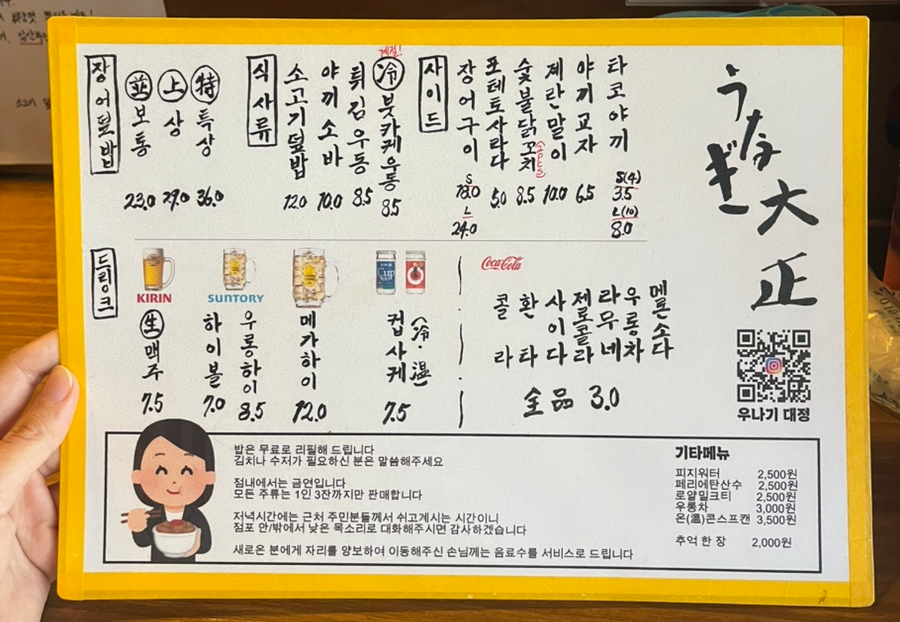 장어덮밥
並 보통 23.0
上 상 29.0
特 특상 36.0
식사류
소고기덮밥 12.0
야끼소바 10.0
튀김우동 8.5
계절!
冷 붓카케우동 8.5
사이드
장어구이 S 18.0 L 24.0
포테토사라다 5.0
숯불닭꼬치 8.5
계란말이 10.0
야끼교자 6.5
타코야끼 S(4) 3.5 L(10) 8.0
うなぎ大正
드링크
KIRIN
生 맥주 7.5
SUNTORY
하이볼 7.0
우롱하이 8.5
메가하이 12.0
컵사케 (冷・温) 7.5
Coca-Cola
콜라
환타
사이다
제로콜라
라무네
우롱차
멜론소다
全品 3.0
우나기 대정
밥은 무료로 리필해 드립니다
김치나 수저가 필요하신 분은 말씀해주세요
점내에서는 금연입니다
모든 주류는 1인 3잔까지만 판매합니다
저녁시간에는 근처 주민분들께서 쉬고계시는 시간이니
점포 안/밖에서 낮은 목소리로 대화해주시면 감사하겠습니다
새로온 분에게 자리를 양보하여 이동해주신 손님께는 음료수를 서비스로 드립니다
기타메뉴
피지워터 2,500원
페리에탄산수 2,500원
로얄밀크티 2,500원
우롱차 3,000원
온(溫)콘스프캔 3,500원
추억 한 장 2,000원